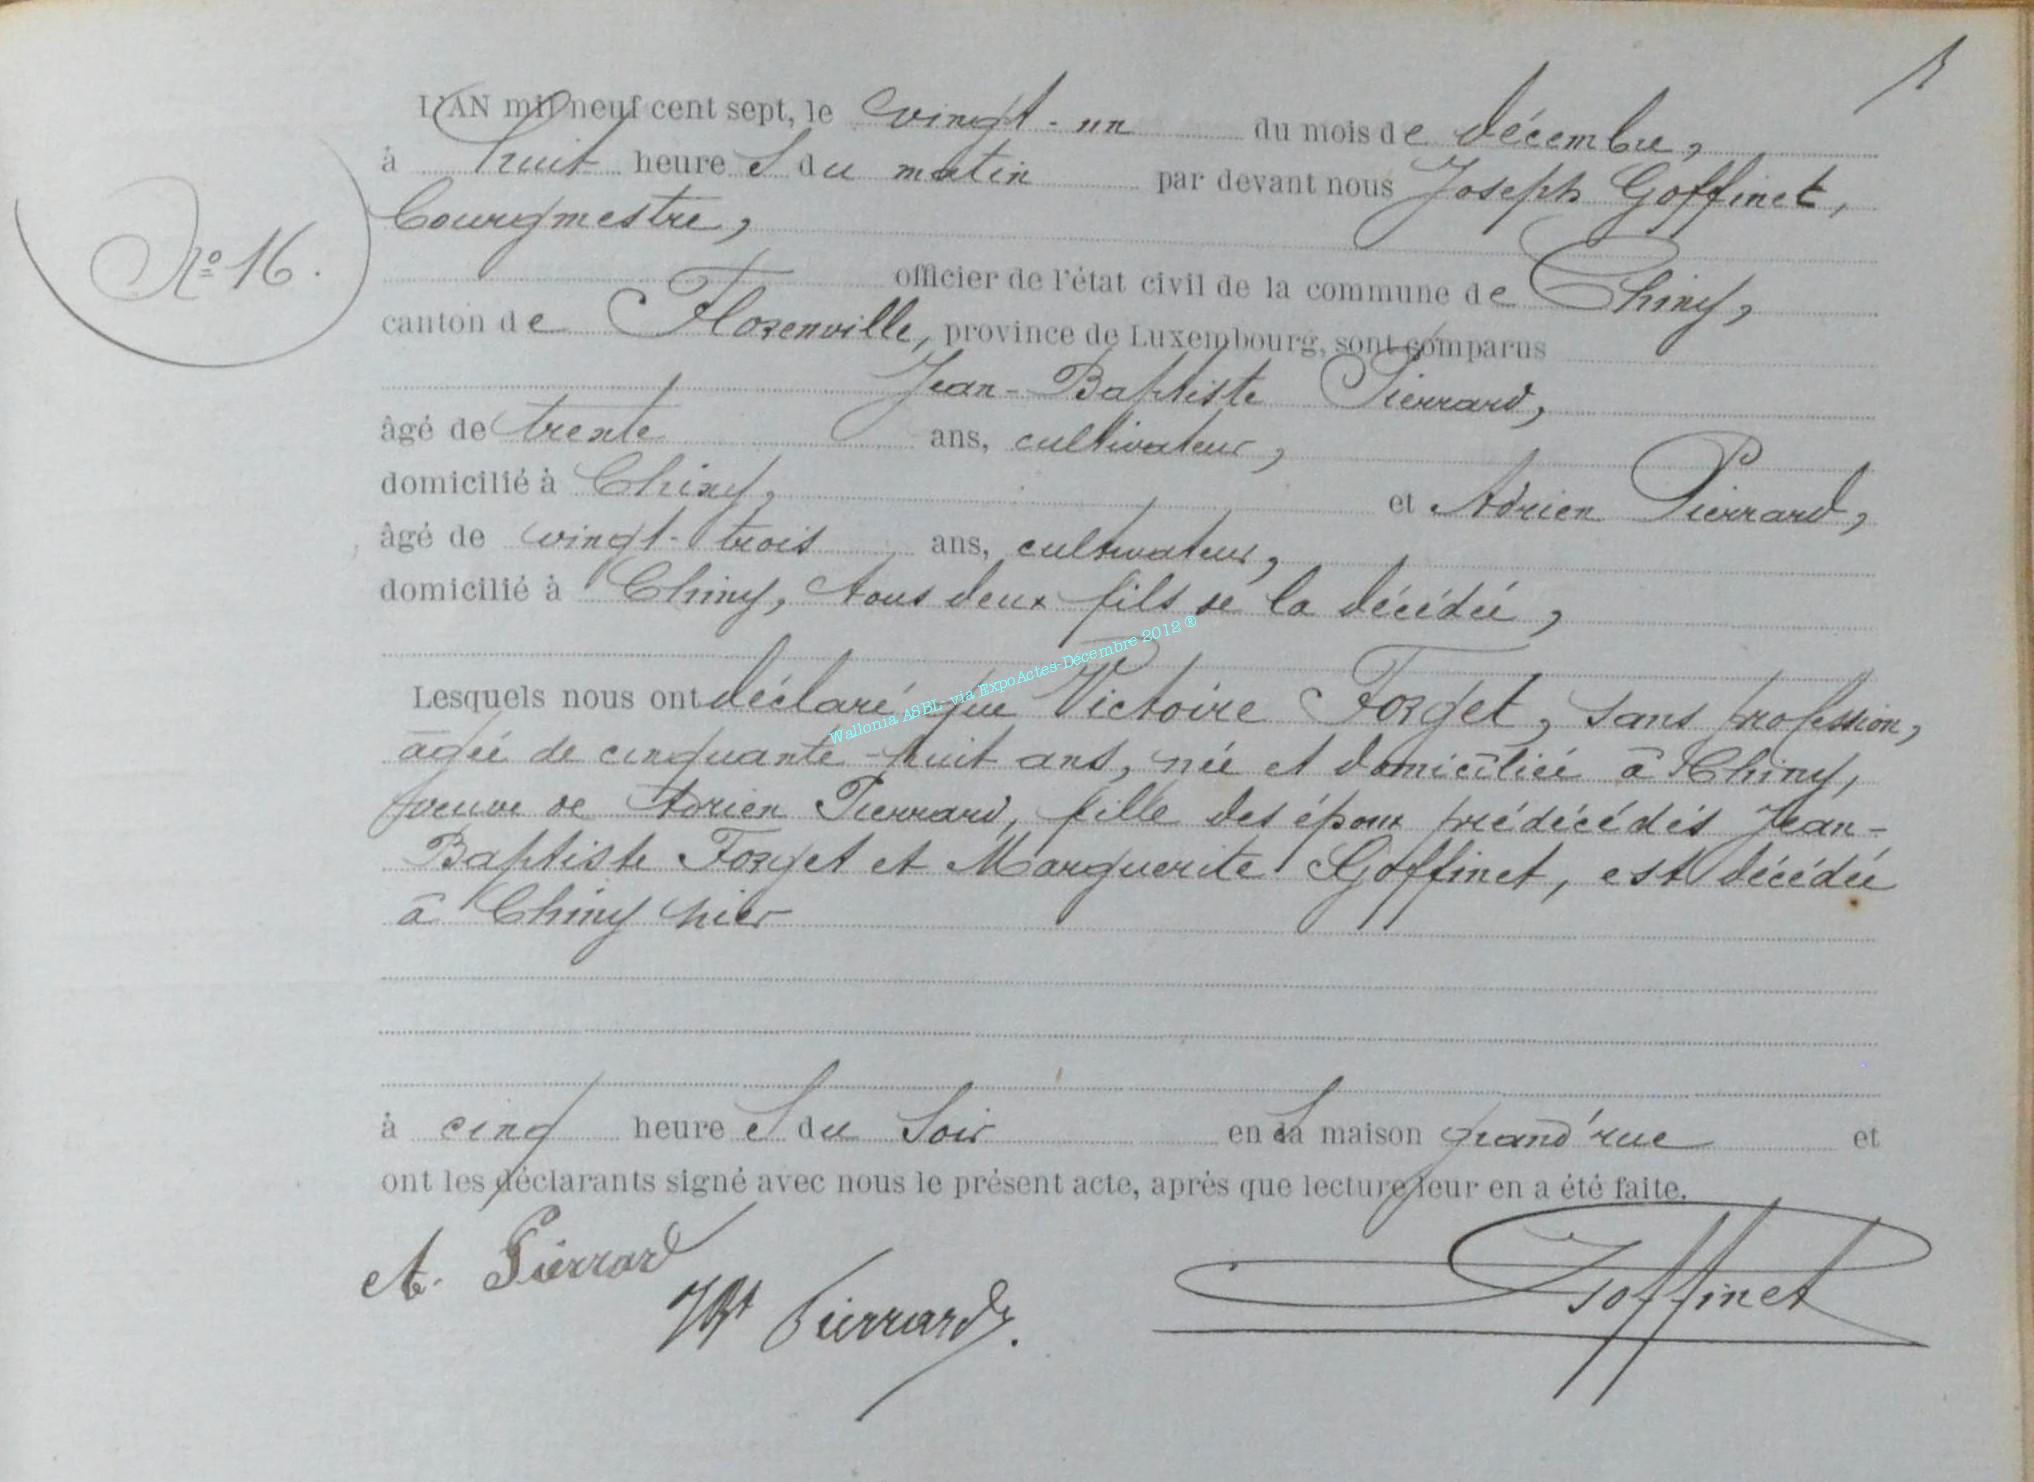 L'AN mil neuf cent sept, le vingt-un du mois de décembre,
à huit heures du matin par devant nous Joseph Goffinet,
Bourgmestre,
N° 16.
officier de l'état civil de la commune de Chiny,
canton de Florenville, province de Luxembourg, sont comparus
Jean-Baptiste Pierrard,
âgé de trente ans, cultivateur,
domicilié à Chiny, et Adrien Pierrard,
âgé de vingt-trois ans, cultivateur,
domicilié à Chiny, tous deux fils de la décédée,
Lesquels nous ont déclaré que Victoire Forget, sans profession,
âgée de cinquante-huit ans, née et domiciliée à Chiny,
veuve de Adrien Pierrard, fille des époux prédécédés Jean-
Baptiste Forget et Marguerite Goffinet, est décédée
à Chiny hier
à cinq heures du soir en sa maison grand'rue et
ont les déclarants signé avec nous le présent acte, après que lecture leur en a été faite.
A. Pierrard
JBt Pierrard.
Goffinet
Wallonia ASBL-via ExpoActes-Décembre 2012 ®